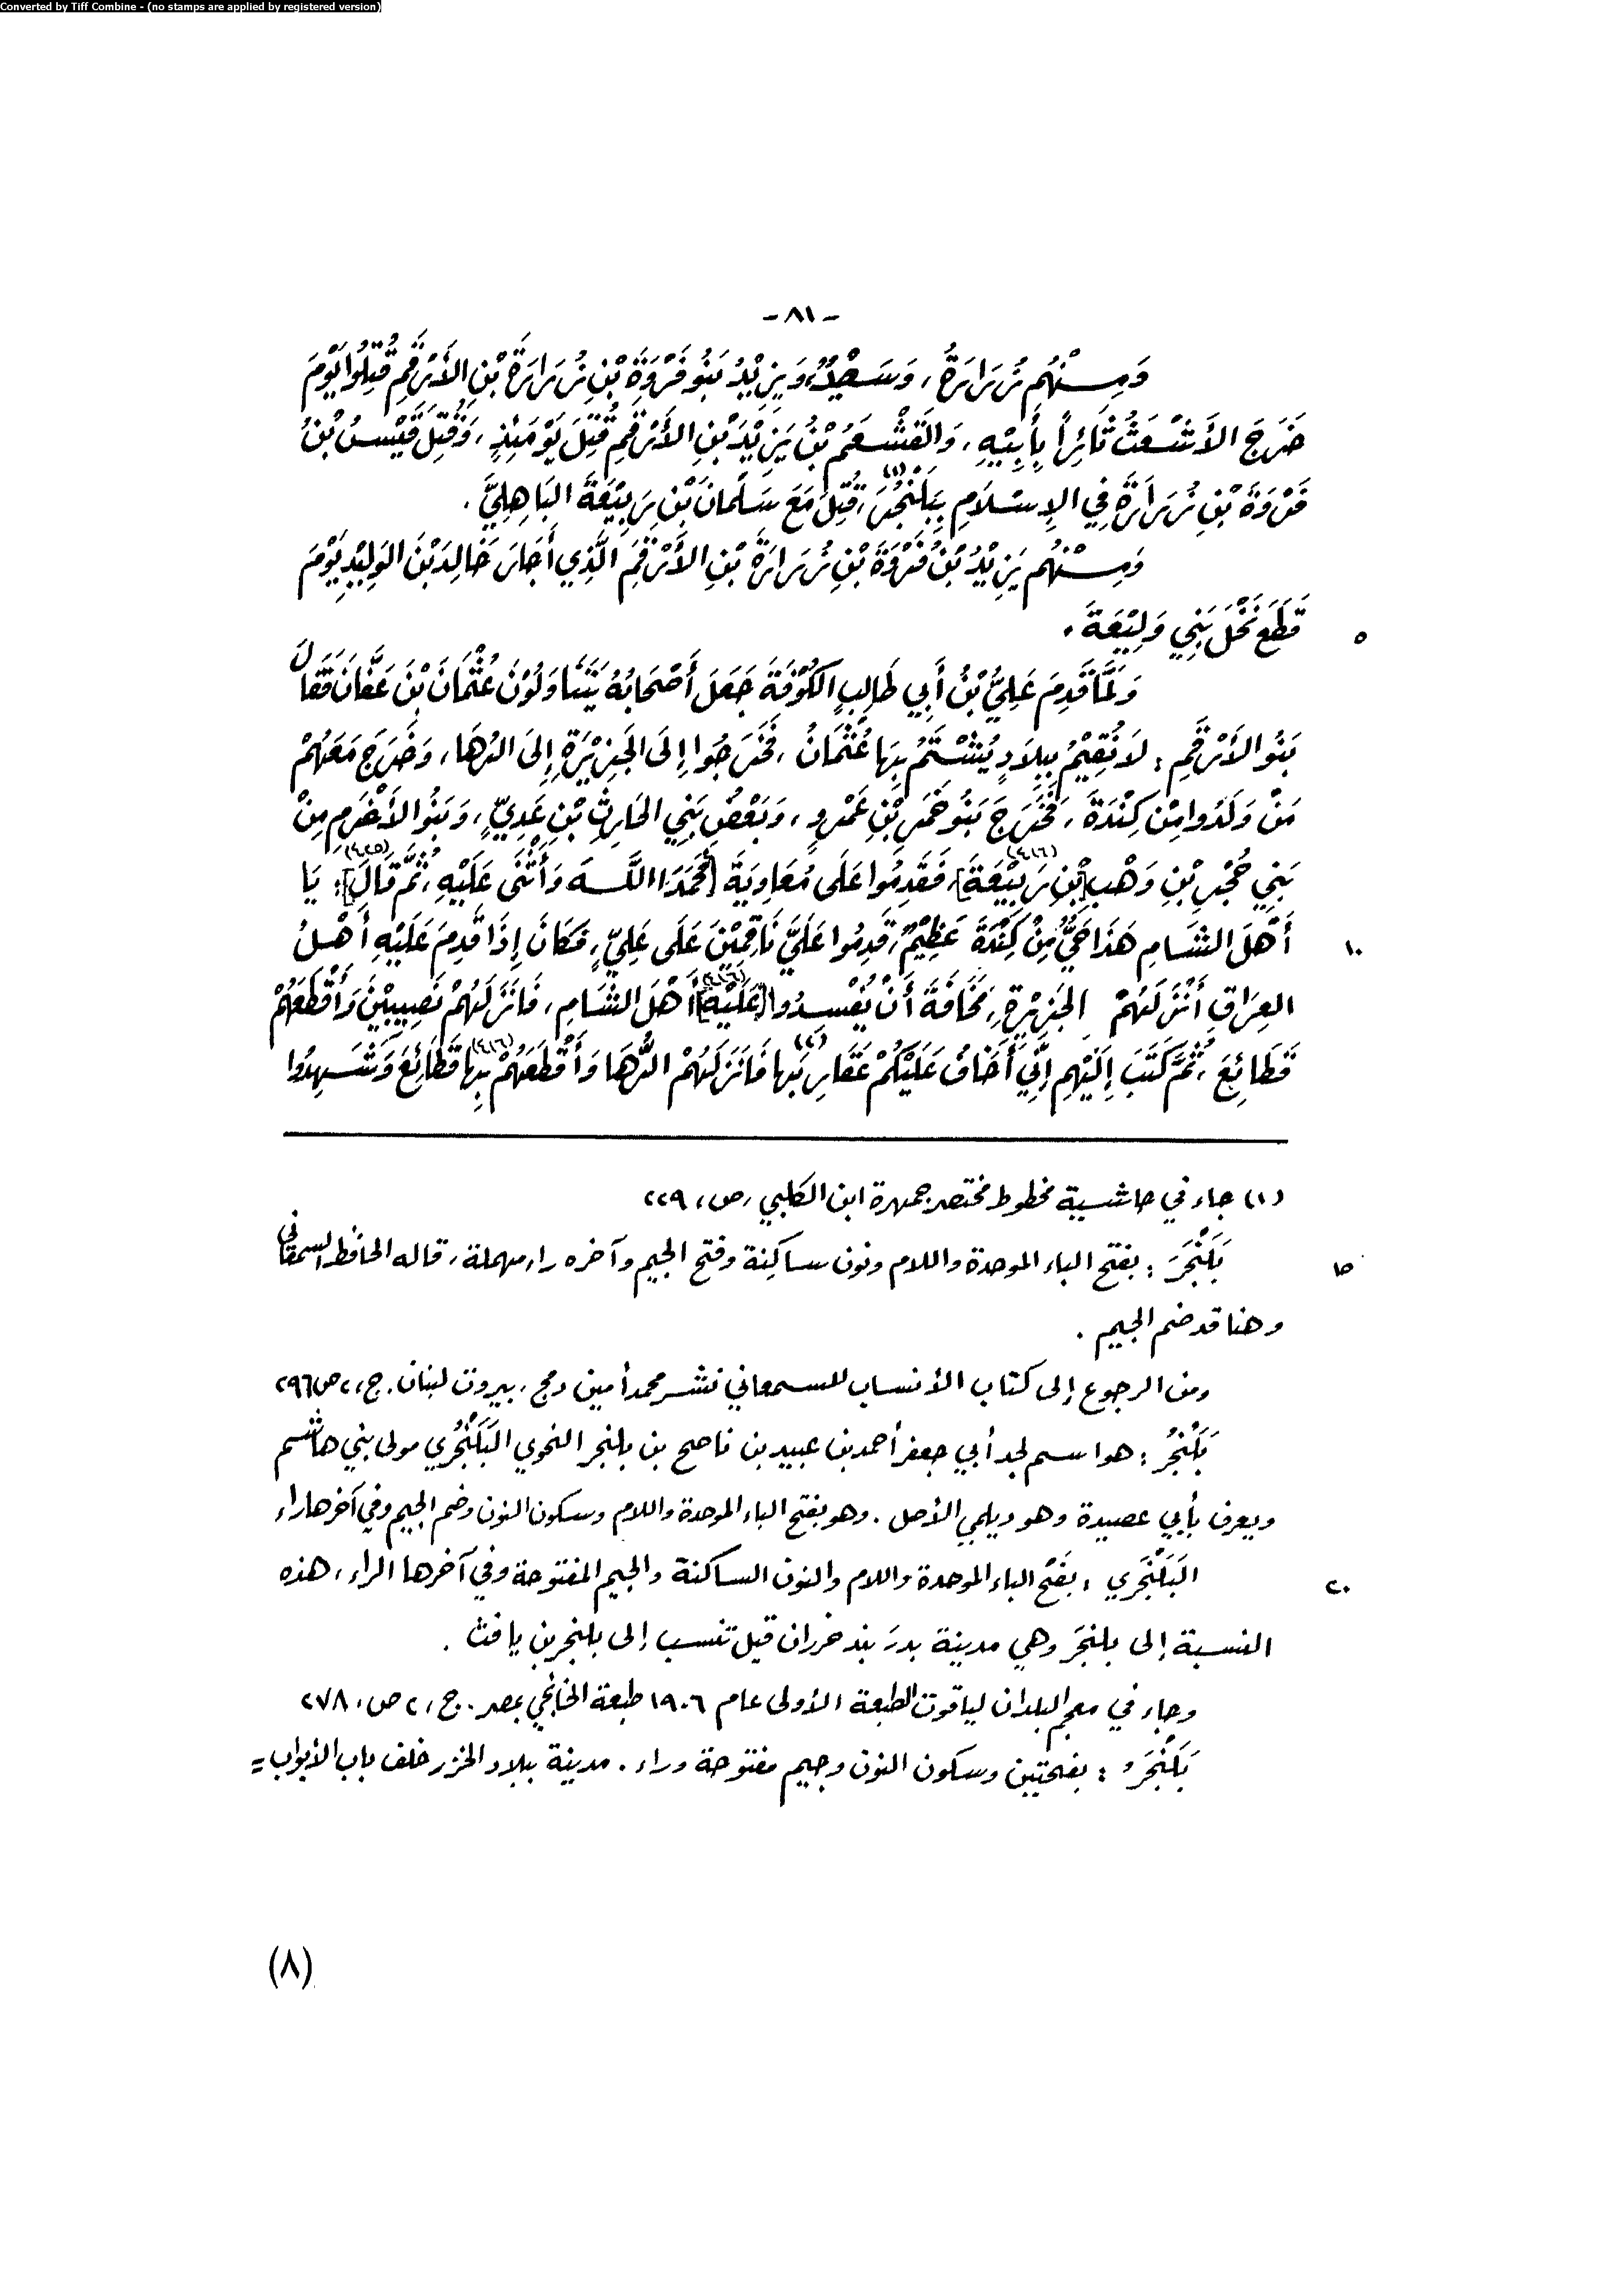 Converted by Tiff Combine - (no stamps are applied by registered version)
- ٨١ -
وَمِنْهُم زُرَارَةُ، وَسَعْدٌ، وَيَزِيْدُ بَنُو فَرْوَةَ بْنِ زُرَارَةَ بْنِ الأَرْقَمِ قُتِلُوا يَوْمَ
خَرَجَ الأَشْعَثُ ثَائِراً بِأَبِيْهِ، وَالقَشْعَمُ بْنُ يَزِيْدَ بْنِ الأَرْقَمِ قُتِلَ يَوْمَئِذٍ، وَقُتِلَ قَيْسُ بْنُ
فَرْوَةَ بْنِ زُرَارَةَ فِي الإِسْلَامِ بِبَلَنْجُرَ، (١) قُتِلَ مَعَ سَلْمَانَ بْنِ رَبِيْعَةَ البَاهِلِيَّ.
وَمِنْهُم يَزِيْدُ بْنُ فَرْوَةَ بْنِ زُرَارَةَ بْنِ الأَرْقَمَ الَّذِي أَجَارَ خَالِدَ بْنَ الوَلِيْدِ يَوْمَ
٥ قَطَعَ نَخْلَ بَنِي وَلِيْعَةَ.
وَلَمَّا قَدِمَ عَلِيُّ بْنُ أَبِي طَالِبٍ الكُوْفَةَ جَعَلَ أَصْحَابُهُ يَتَنَاوَلُوْنَ عُثْمَانَ بْنَ عَفَّانَ فَقَالَ
بَنُو الأَرْقَمِ: لَا نُقِيْمُ بِبِلَادٍ يُشْتَمُ بِهَا عُثْمَانُ، فَخَرَجُوا إِلَى الجَزِيْرَةِ إِلَى الرُّهَا، وَخَرَجَ مَعَهُمْ
مَنْ وَلَدُوا مِنْ كِنْدَةَ، فَخَرَجَ بَنُو خَمَرِ بْنِ عَمْرٍو، وَبَعْضُ بَنِي الحَارِثِ بْنِ عَدِيٍّ، وَبَنُو الأَخْرَمِ مِنْ
بَنِي حُجْرِ بْنِ وَهْبِ [بْنِ رَبِيْعَةَ] (٤١٦)، فَقَدِمُوا عَلَى مُعَاوِيَةَ [فَحَمَدَ اللَّهَ وَأَثْنَى عَلَيْهِ، ثُمَّ قَالَ] (٤٢٥): يَا
١٠ أَهْلَ الشَّامِ هَذَا حَيٌّ مِنْ كِنْدَةَ عَظِيْمٌ، قَدِمُوا عَلَيَّ نَاقِمِيْنَ عَلَى عَلِيٍّ، فَكَانَ إِذَا قَدِمَ عَلَيْهِ أَهْلُ
العِرَاقِ أَنْزَلَهُمْ الجَزِيْرَةِ، مَخَافَةَ أَنْ يُفْسِدُوا [عَلَيْهِ] (٤١٦) أَهْلَ الشَّامِ، فَأَنْزَلَهُمْ نَصِيبِيْنَ وَأَقْطَعَهُمْ
قَطَائِعَ، ثُمَّ كَتَبَ إِلَيْهِم إِنِّي أَخَافُ عَلَيْكُمْ عَقَارِبَهَا (٢) فَأَنْزَلَهُمْ الرُّهَا وَأَقْطَعَهُمْ بِهَا (٤١٦) قَطَائِعَ وَشَهِدُوا
(١) جاء في حاشية مخطوط مختصر جمهرة ابن الكلبي، ص، ٢٢٩
١٥ بَلَنْجَرَ: بفتح الباء الموحدة واللام ونون ساكِنة وفتح الجيم وآخره راء مهملة، قاله الحافظ السمعاني
وهنا قد ضم الجيم.
ومن الرجوع إلى كتاب الأنساب للسمعاني نشر محمد أمين دمج، بيروت لبنان. ج، ٢ ص ٢٩٦
بَلَنْجُرُ: هو اسم لجد أبي جعفر أحمد بن عبيد بن ناصح بن بلنجر النحوي البَلَنْجُرِي مولى بني هاشم
ويعرف بأبي عصيدة وهو ديلمي الأصل. وهو بفتح الباء الموحدة واللام وسكون النون وضم الجيم وفي آخرها راء
٢٠ البَلَنْجَرِي، بفَتْح الباء الموحدة واللام والنون الساكنة والجيم المفتوحة وفي آخرها الراء، هذه
النسبة إلى بلنجَر وهي مدينة بدرَبند خزران قيل تنسب إلى بلنجر بن يافث.
وجاء في معجم البلدان لياقوت الطبعة الأولى عام ١٩٠٦ طبعة الخانجي بمصر. ج، ٢ ص، ٢٧٨
بَلَنْجَرُ: بفتحتين وسكون النون وجيم مفتوحة وراء. مدينة ببلاد الخزر خلف باب الأبواب =
(٨)